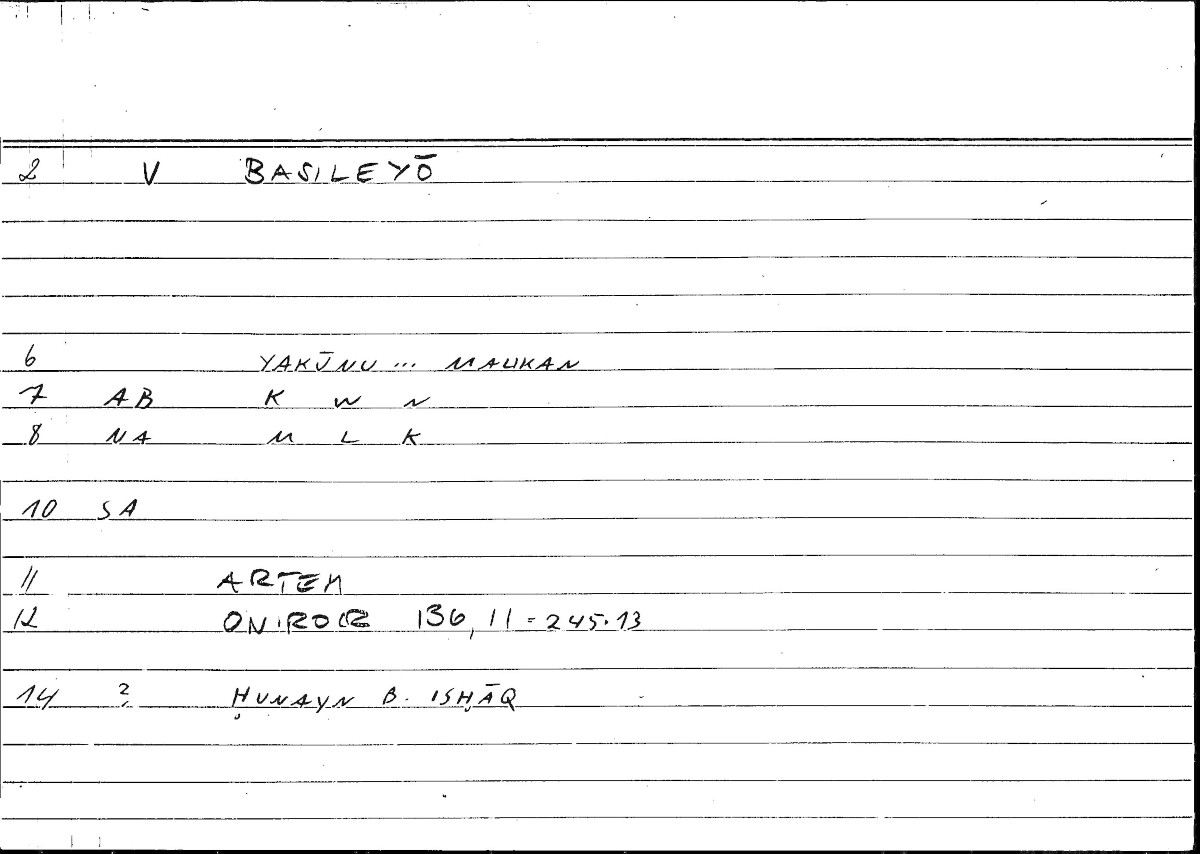 2 V BASILEYŌ
6 YAKŪNU ... MALIKAN
7 AB K W N
8 NA M L K
10 SA
11 ARTEM
12 ONIROCR 136, 11 = 245.13
14 ? ḤUNAYN B. ISḤĀQ